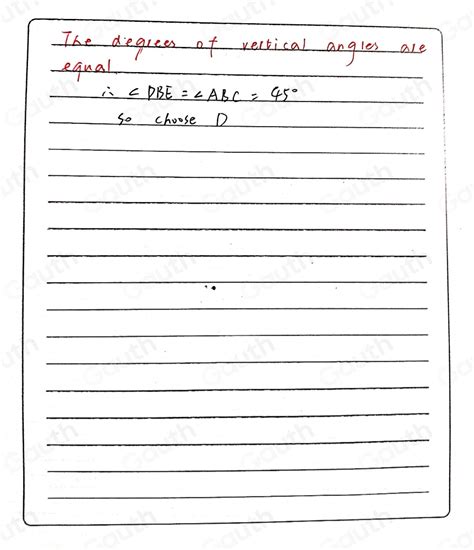 The degrees of vertical angles are
equal.
∴ ∠DBE = ∠ABC = 45°
So choose D